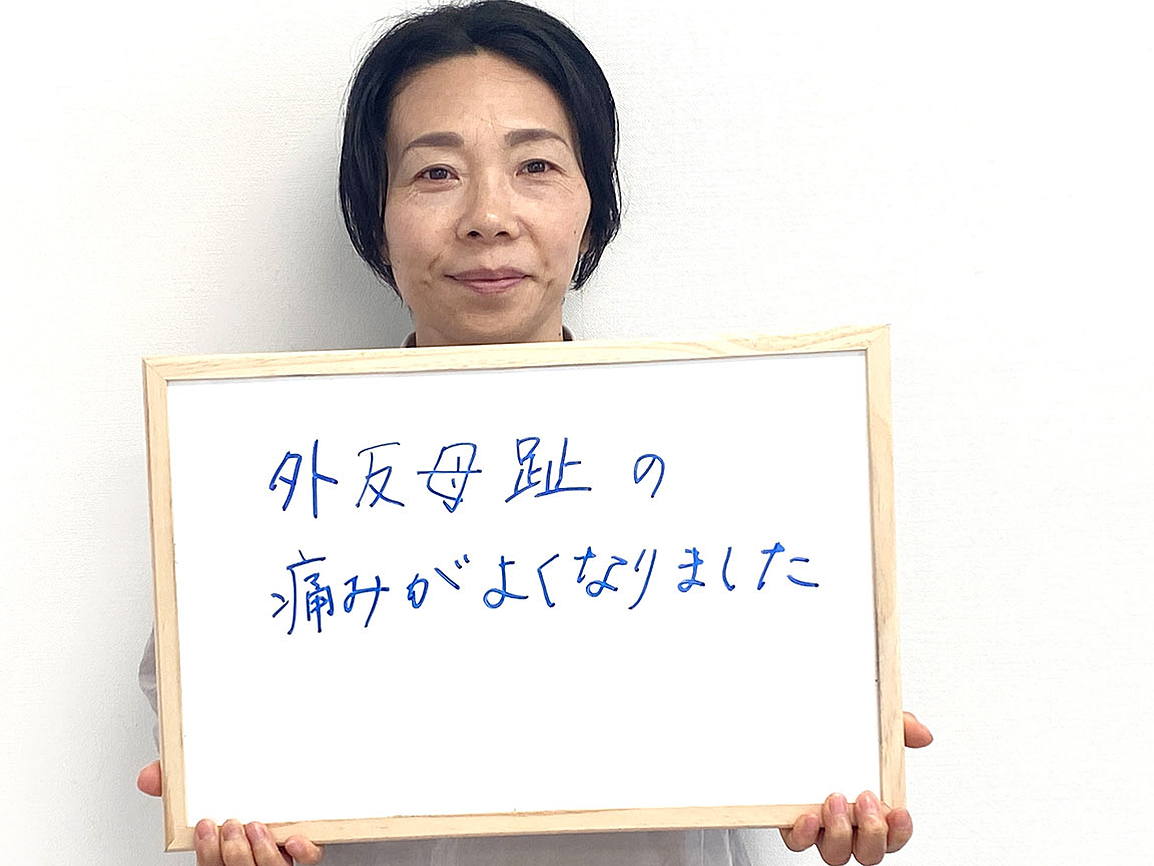 外反母趾の
痛みがよくなりました